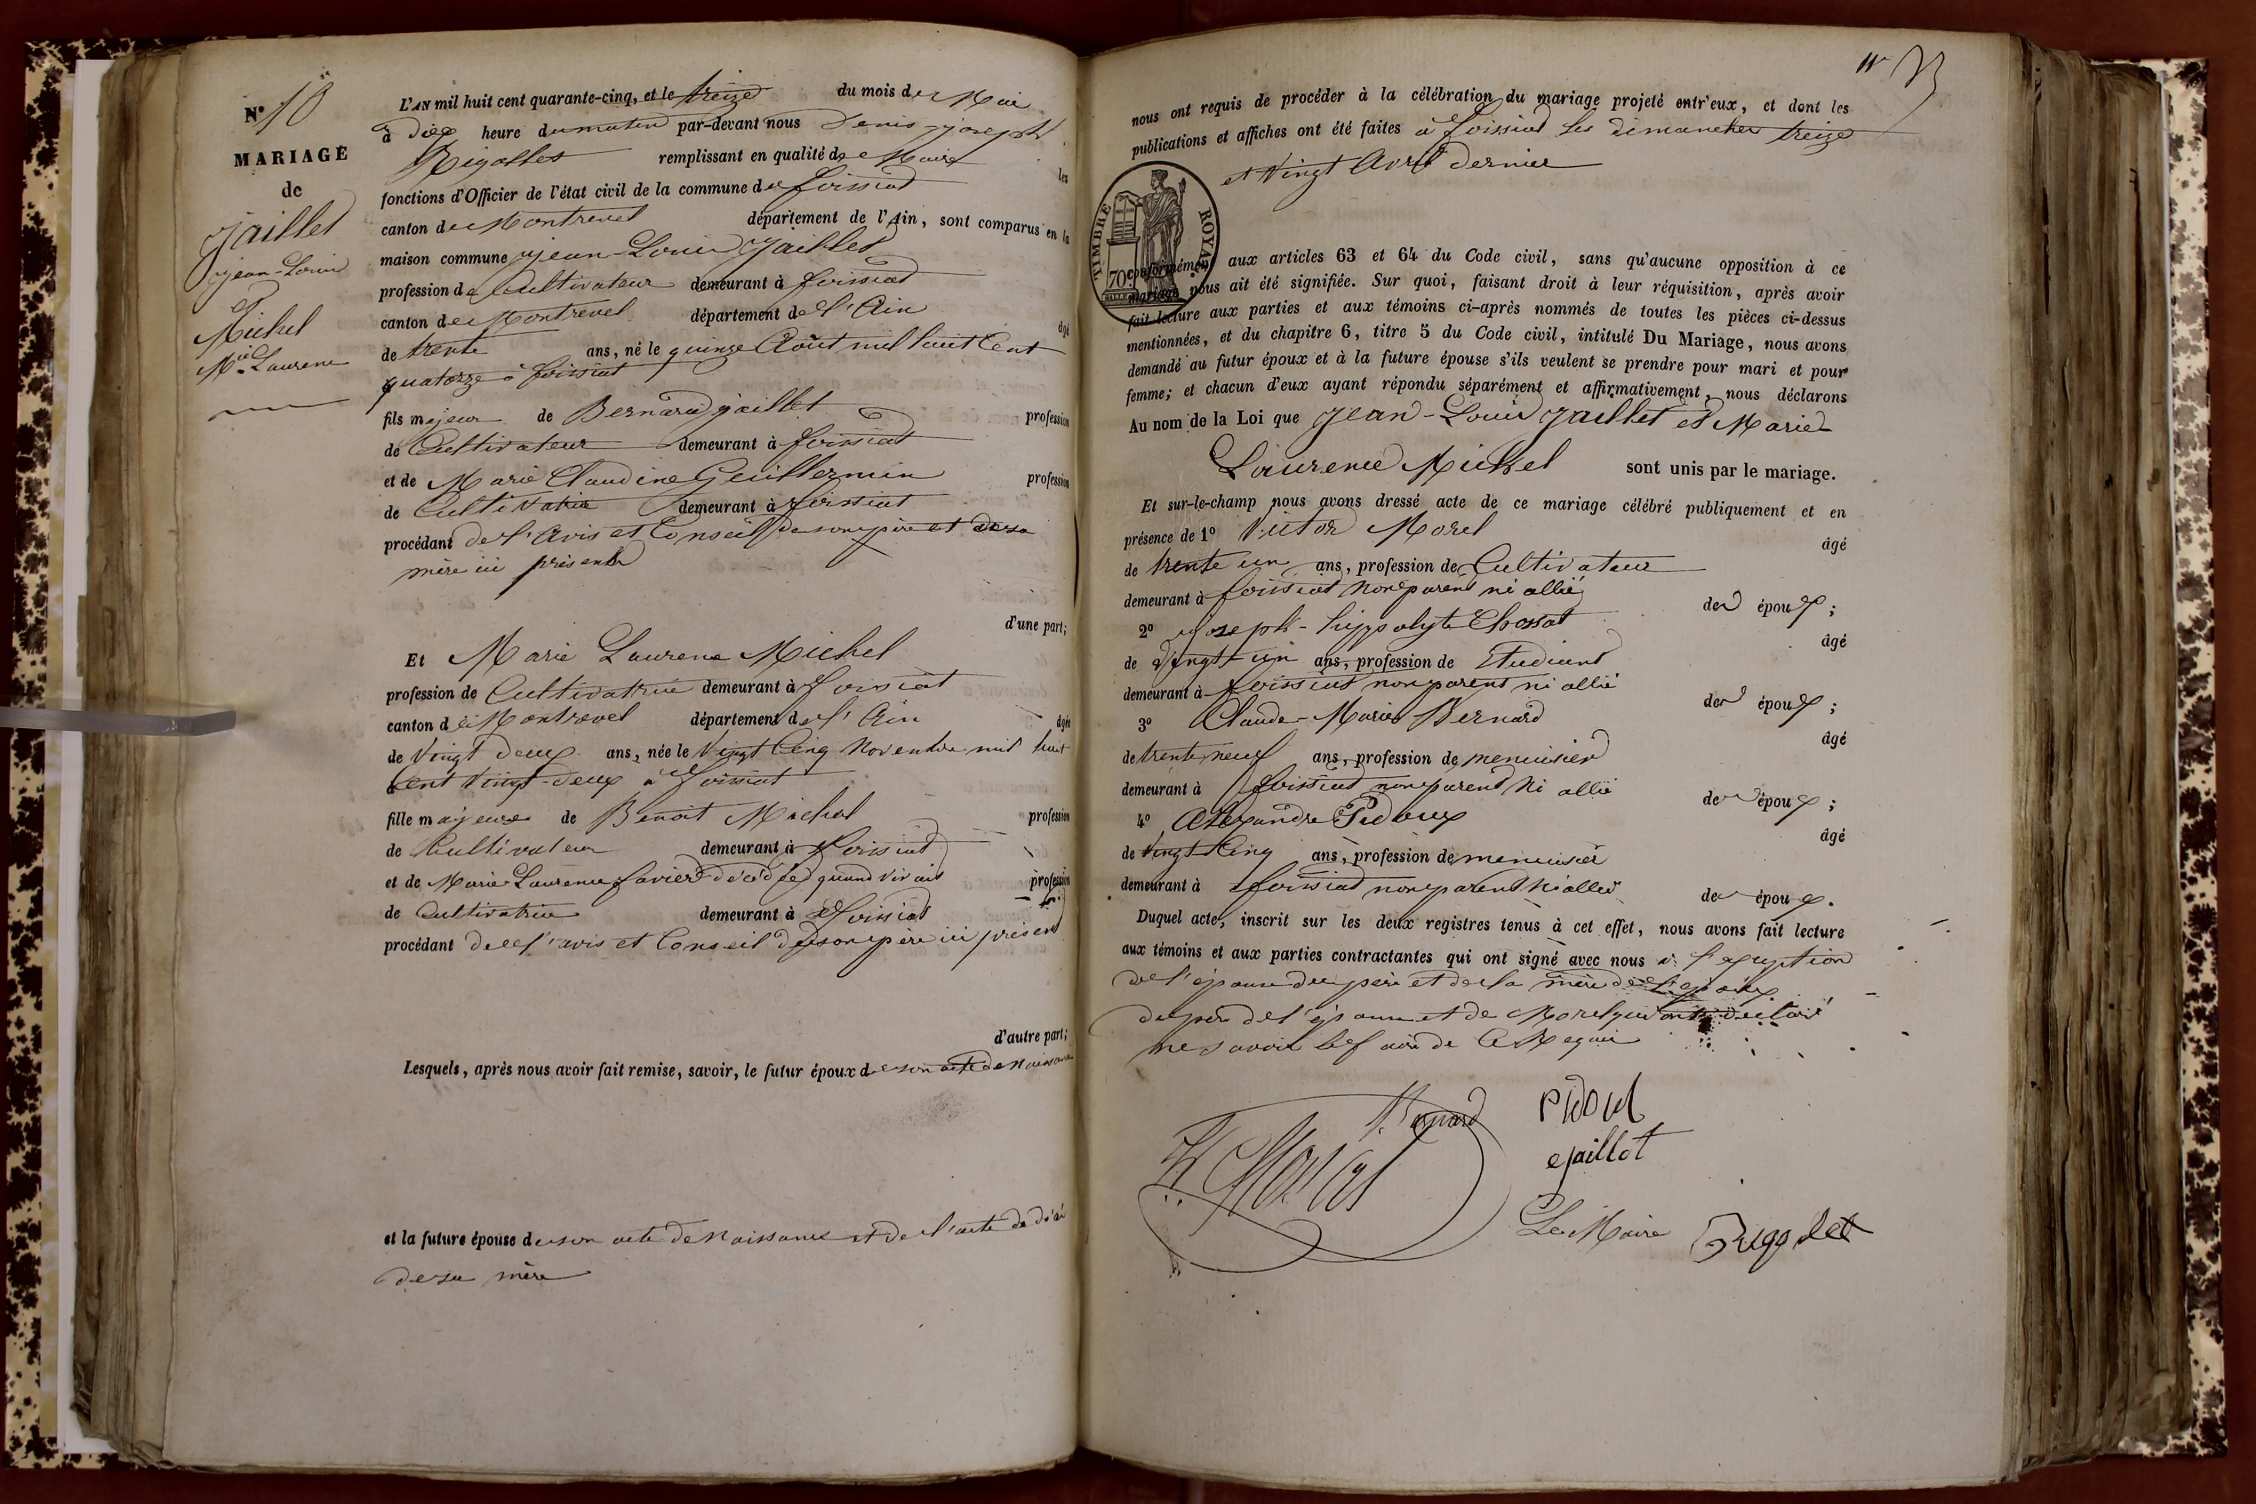 N° 10
MARIAGE
de
Jaillet
jean-Louis
et
Michel
Mie Laurence
L'AN mil huit cent quarante-cinq, et le treize du mois de Mai
à dix heure du matin par-devant nous Denis-joseph
Rigollet remplissant en qualité de Maire les
fonctions d'Officier de l'état civil de la commune de foissiat
canton de Montrevel département de l'Ain, sont comparus en la
maison commune jean-Louis Jaillet
profession de Cultivateur demeurant à foissiat
canton de Montrevel département de l'Ain âgé
de trente ans, né le quinze Août mil huit Cent
quatorze à foissiat
fils majeur de Bernard jaillet profession
de Cultivateur demeurant à foissiat
et de Marie Claudine Guillermin profession
de Cultivatrice demeurant à foissiat
procédant de l'avis et Conseil de son père et de sa
mère ici présents
d'une part;
Et Marie Laurence Michel
profession de Cultivatrice demeurant à foissiat
canton de Montrevel département de l'Ain âgée
de Vingt deux ans, née le Vingt Cinq Novembre mil huit
Cent Vingt-deux à foissiat
fille majeure de Benoit Michel profession
de Cultivateur demeurant à foissiat
et de Marie Laurence favier décédée quand vivait profession
de Cultivatrice demeurant à foissiat
procédant de l'avis et Conseil de son père ici présent
d'autre part;
Lesquels, après nous avoir fait remise, savoir, le futur époux de son acte de Naissance
et la future épouse de son acte de Naissance et de l'acte de décès
de sa mère
nous ont requis de procéder à la célébration du mariage projeté entr'eux, et dont les
publications et affiches ont été faites à foissiat les dimanches treize
et Vingt Avril dernier
TIMBRE ROYAL
70c
conformément aux articles 63 et 64 du Code civil, sans qu'aucune opposition à ce
mariage nous ait été signifiée. Sur quoi, faisant droit à leur réquisition, après avoir
fait lecture aux parties et aux témoins ci-après nommés de toutes les pièces ci-dessus
mentionnées, et du chapitre 6, titre 5 du Code civil, intitulé Du Mariage, nous avons
demandé au futur époux et à la future épouse s'ils veulent se prendre pour mari et pour
femme; et chacun d'eux ayant répondu séparément et affirmativement, nous déclarons
Au nom de la Loi que Jean-Louis Jaillet et Marie
Laurence Michel sont unis par le mariage.
Et sur-le-champ nous avons dressé acte de ce mariage célébré publiquement et en
présence de 1° Victor Morel âgé
de trente un ans, profession de Cultivateur
demeurant à foissiat non parent ni allié des époux;
2° joseph-hyppolyte Chossat âgé
de Vingt-un ans, profession de Etudiant
demeurant à foissiat non parent ni allié des époux;
3° Claude-Marie Bernard âgé
de trente neuf ans, profession de menuisier
demeurant à foissiat non parent Ni allié des époux;
4° Alexandre Pidoux âgé
de Vingt Cinq ans, profession de menuisier
demeurant à foissiat non parent Ni allié des époux.
Duquel acte, inscrit sur les deux registres tenus à cet effet, nous avons fait lecture
aux témoins et aux parties contractantes qui ont signé avec nous à l'exception
de l'épouse du père et de la mère de l'époux
du père de l'épouse et de Morel qui ont déclaré
ne savoir le faire de Ce Requis
Bernard
Jaillet
Le Maire Rigollet